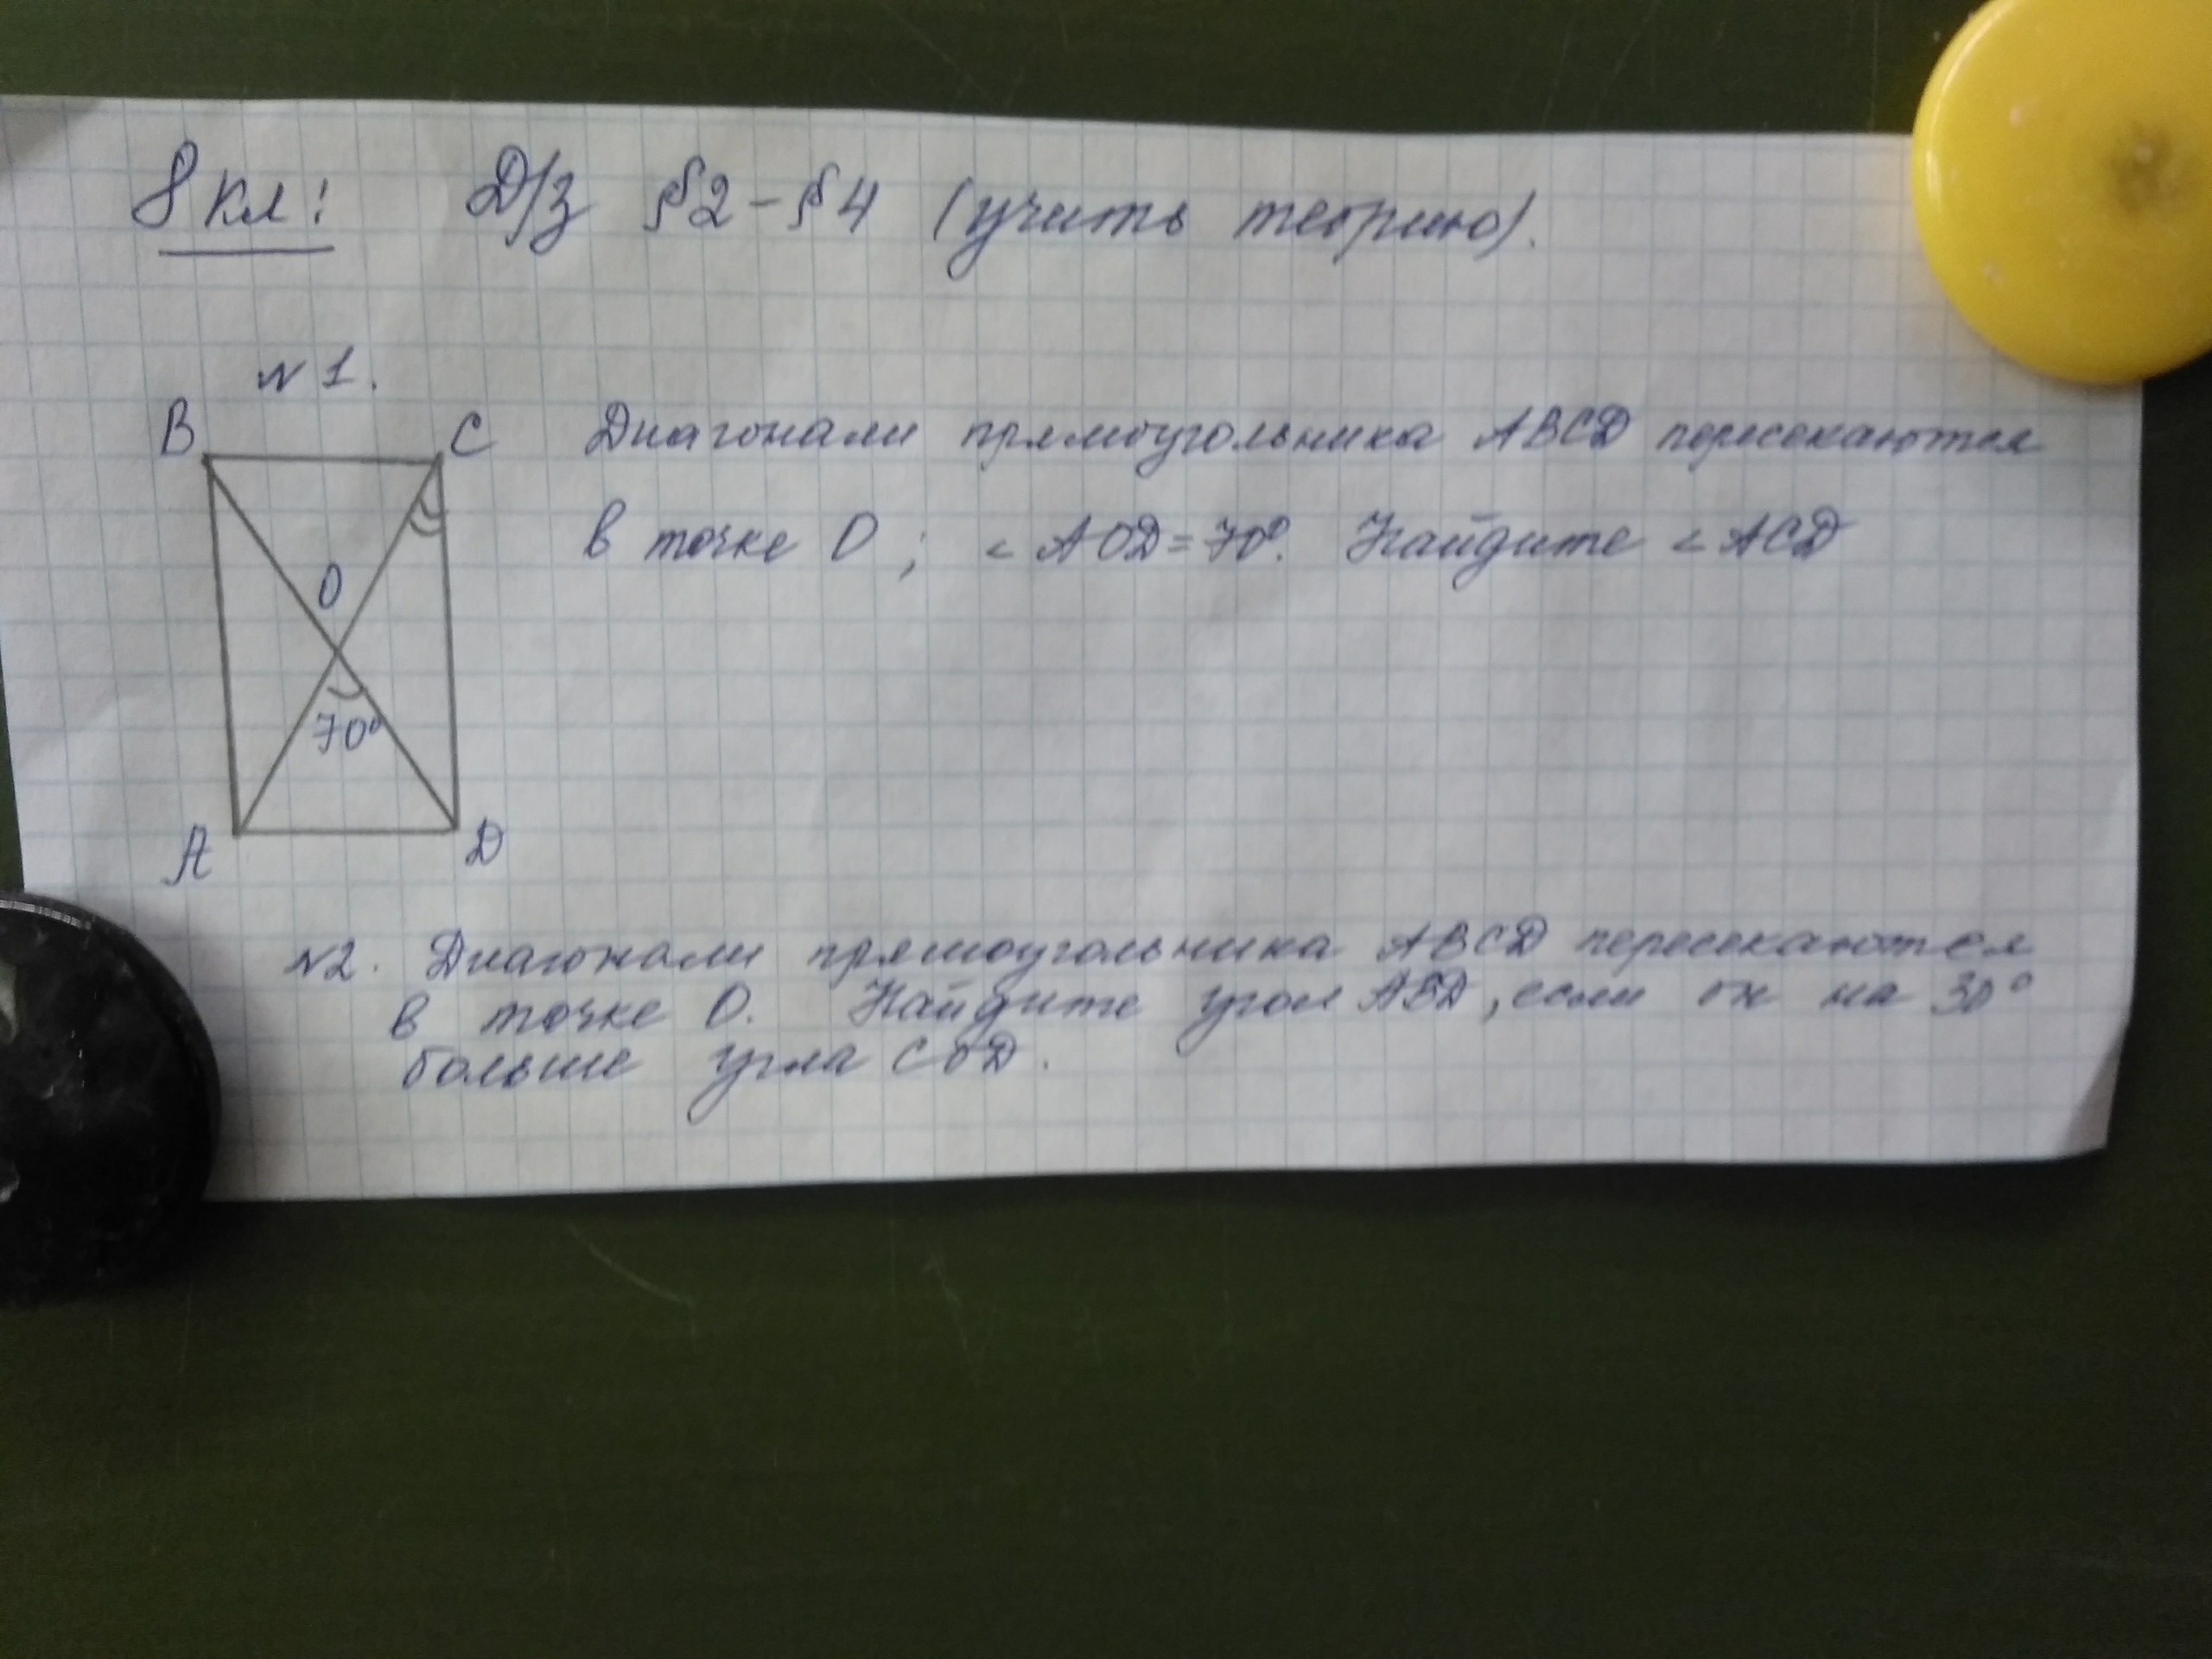 8 кл: Д/з §2-§4 (учить теорию).
N1.
B C Диагонали прямоугольника ABCD пересекаются
в точке O; < AOD=70°. Найдите < ACD
O
70°
A D
N2. Диагонали прямоугольника ABCD пересекаются
в точке O. Найдите угол ABD, если он на 30°
больше угла COD.